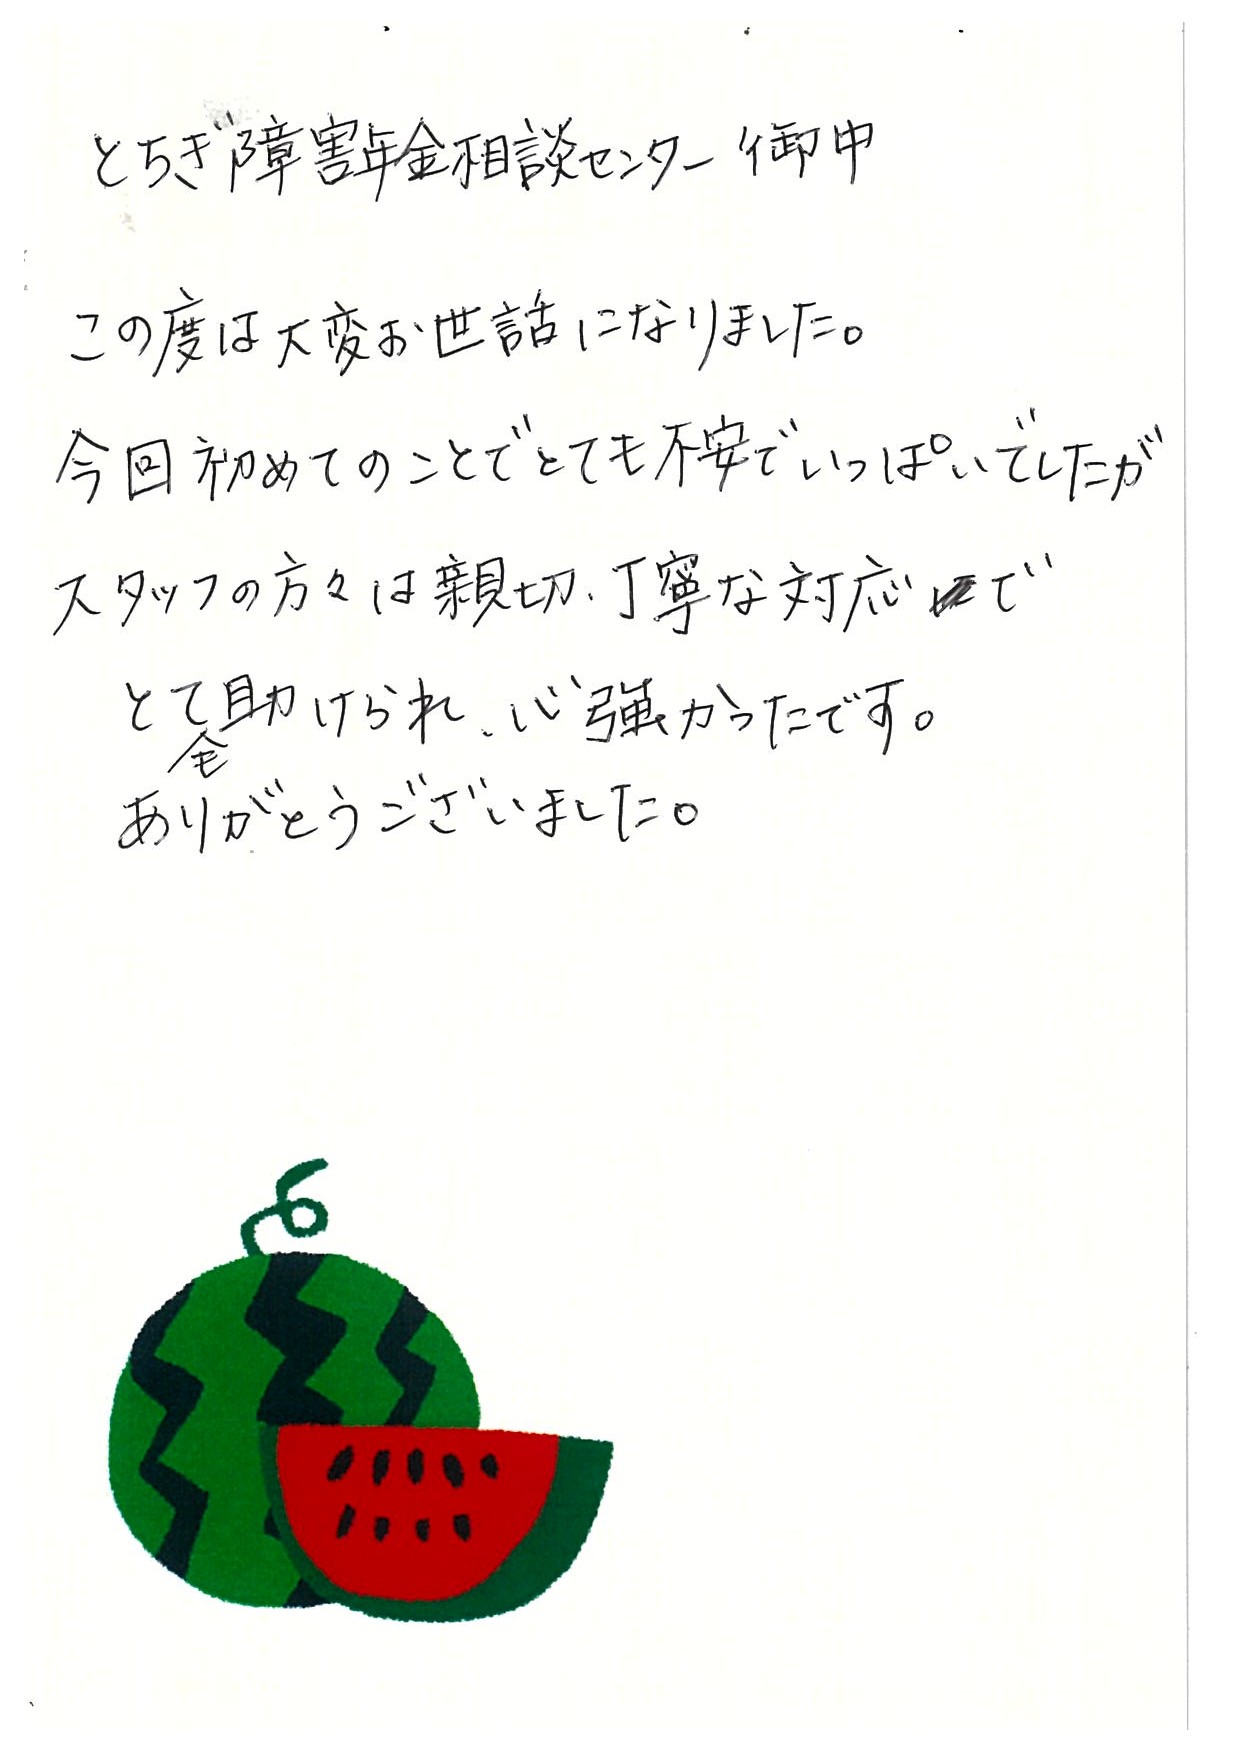 とちぎ障害年金相談センター 御中
この度は大変お世話になりました。
今回初めてのことでとても不安でいっぱいでしたが
スタッフの方々は親切、丁寧な対応で
とても助けられ、心強かったです。
ありがとうございました。